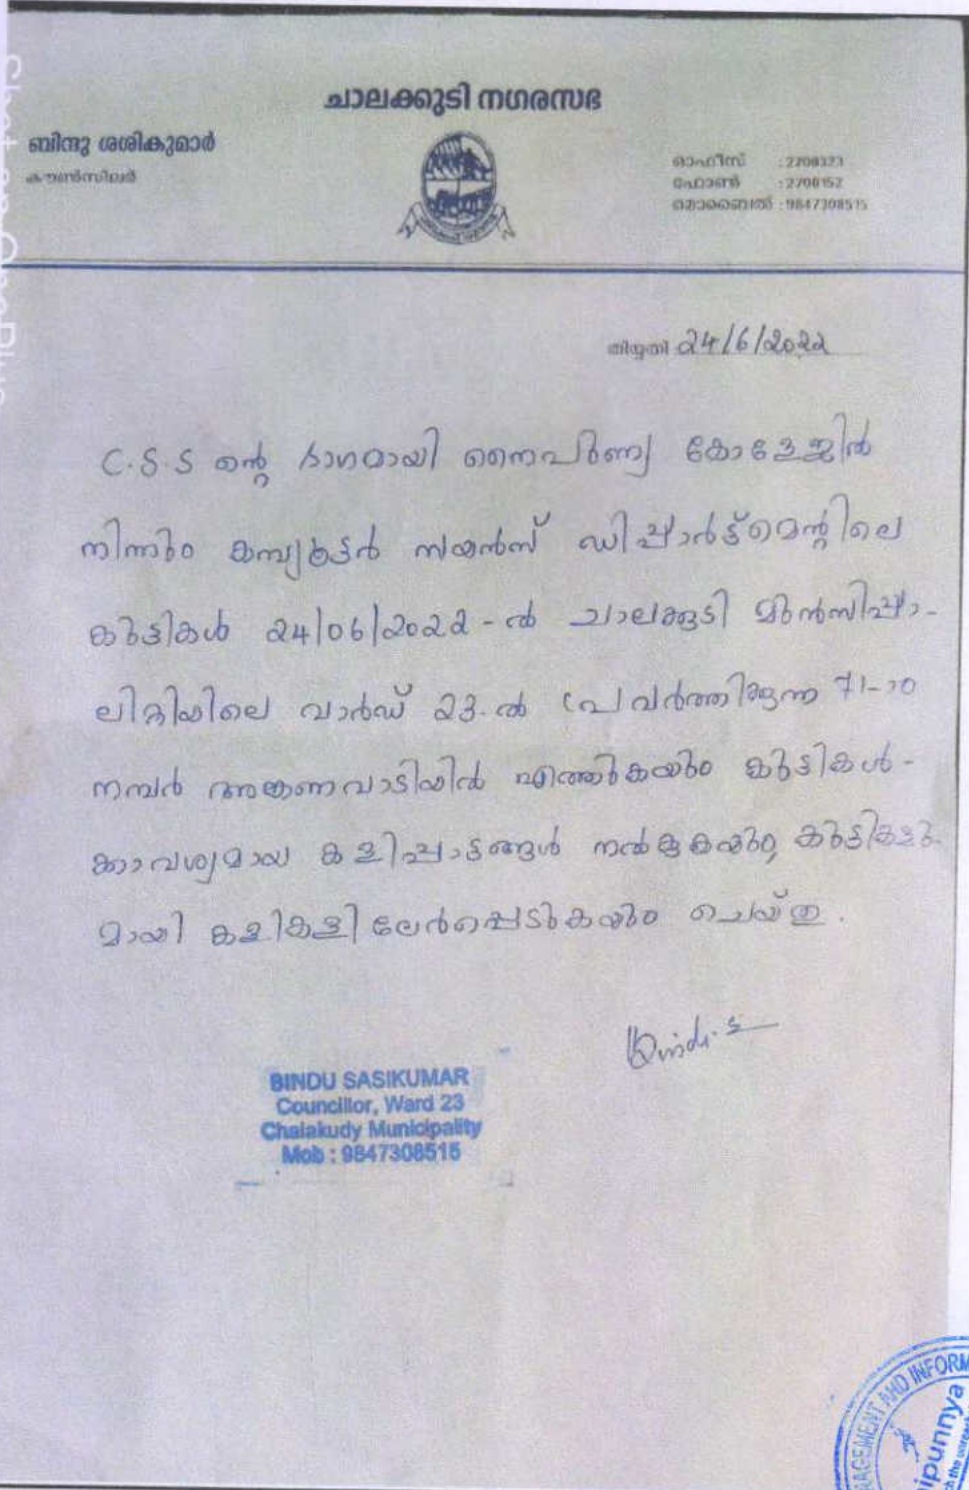 Shot on OnePlus
ചാലക്കുടി നഗരസഭ
ബിന്ദു ശശികുമാർ
കൗൺസിലർ
ഓഫീസ് : 2708323
ഫോൺ : 2708152
മൊബൈൽ : 9847308515
തിയ്യതി 24/6/2022
C.S.S ന്റെ ഭാഗമായി നൈപുണ്യ കോളേജിൽ
നിന്നും കമ്പ്യൂട്ടർ സയൻസ് ഡിപ്പാർട്ട്മെന്റിലെ
കുട്ടികൾ 24/06/2022-ൽ ചാലക്കുടി മുൻസിപ്പാ-
ലിറ്റിയിലെ വാർഡ് 23-ൽ പ്രവർത്തിക്കുന്ന 71-ാം
നമ്പർ അങ്കണവാടിയിൽ എത്തുകയും കുട്ടികൾ-
ക്കാവശ്യമായ കളിപ്പാട്ടങ്ങൾ നൽകുകയും, കുട്ടികളു-
മായി കളികളിലേർപ്പെടുകയും ചെയ്തു.
Bindu.S
BINDU SASIKUMAR
Councillor, Ward 23
Chalakudy Municipality
Mob : 9847308515
AGEMENT AND INFORM
ipunnya